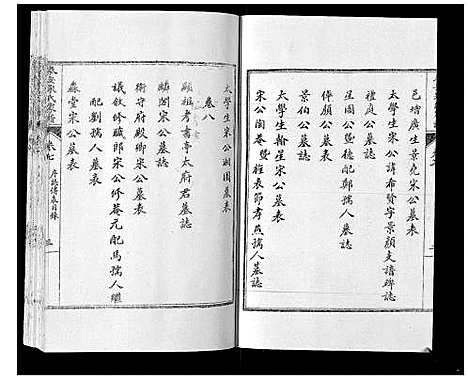 邑增廣生景堯宋公墓表
太學生宋公諱布賢字景顏支譜碑誌
禮庭公墓誌
星園公暨德配鄭孺人墓誌
伴顏公墓表
景伯公墓表
太學生翰星宋公墓表
宋公陶菴暨旌表節孝焦孺人墓誌
太學生宋公樹園墓表
卷八
顯祖考書亭太府君墓誌
麟閣宋公墓誌
衛守府殿卿宋公墓表
議敘修職郎宋公修菴元配馬孺人繼
配劉孺人墓表
淼堂宋公墓表
宋氏
卷七
序誌傳表目錄
三